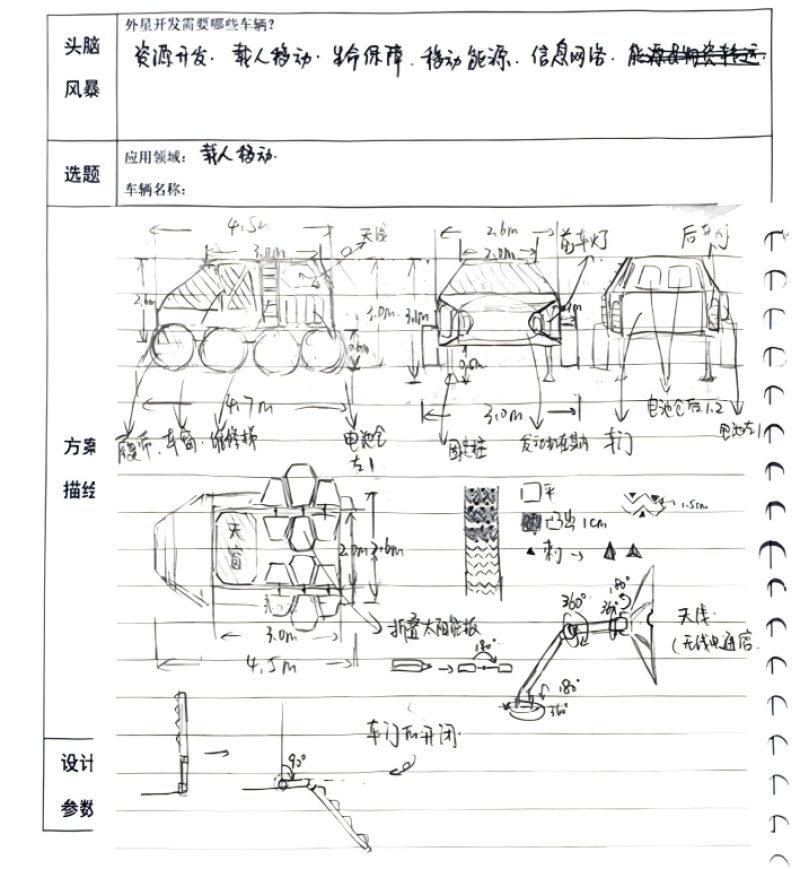 头脑
风暴
外星开发需要哪些车辆?
资源开发. 载人移动. 生命保障. 移动能源. 信息网络.
选题
应用领域: 载人移动.
车辆名称:
方案
描绘
4.5m
天线
3.0m
2.6m
3.1m
0.6m
4.7m
履带. 车窗. 维修梯
电池仓
左1
2.6m
2.0m
前车灯
0.6m
3.0m
固定桩
后车灯
车门
电池仓后1.2
电池左1
天窗
2.0m
2.6m
3.0m
4.5m
折叠太阳能板
180°
平
凸出1cm
刺→
1.5cm
360°
180°
360°
180°
360°
天线.
(无线电通信.
设计
参数
90°
车门开闭.